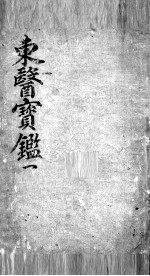 東醫寶鑑一